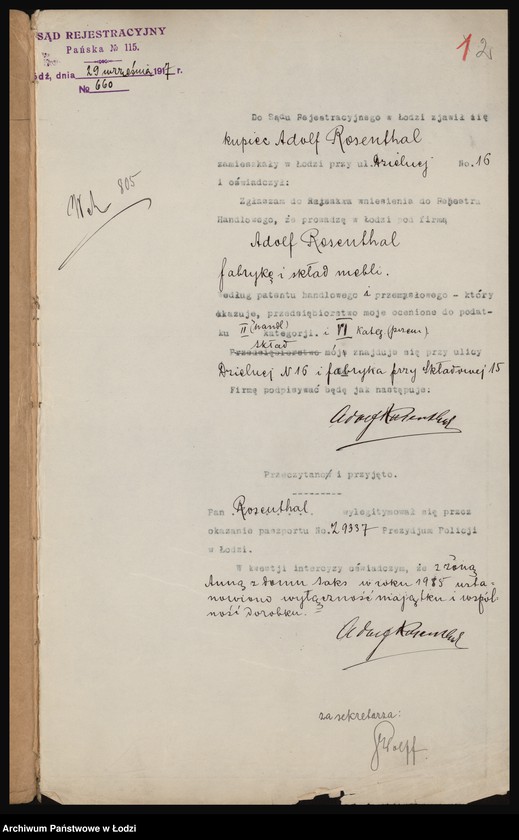 SĄD REJESTRACYJNY
Pańska № 115.
dnia 29 września 1917 r.
№ 660
1 2
805
Do Sądu Rejestracyjnego w Łodzi zjawił się
kupiec Adolf Rosenthal
zamieszkały w Łodzi przy ul. Dzielnej No. 16
i oświadczył:
Zgłaszam do wniesienia do Rejestru
Handlowego, że prowadzę w Łodzi pod firmą
Adolf Rosenthal
fabrykę i skład mebli.
Według patentu handlowego i przemysłowego - który
okazuję, przedsiębiorstwo moje ocenione do podat-
ku II (handl) kategorji. i VI Kateg. (przem).
skład
Przedsiębiorstwo mój znajduje się przy ulicy
Dzielnej N 16 i fabryka przy Składowej 15
Firmę podpisywać będę jak następuje:
Adolf Rosenthal
Przeczytano i przyjęto.
Pan Rosenthal wylegitymował się przez
okazanie paszportu No. 29337 Prezydjum Policji
w Łodzi.
W kwestji intercyzy oświadczym, że z żoną
Anną z domu Saks w roku 1915 usta-
nowiono wyłączność majątku i wspól-
ność dorobku.
Adolf Rosenthal
za sekretarza:
Wolff
Archiwum Państwowe w Łodzi